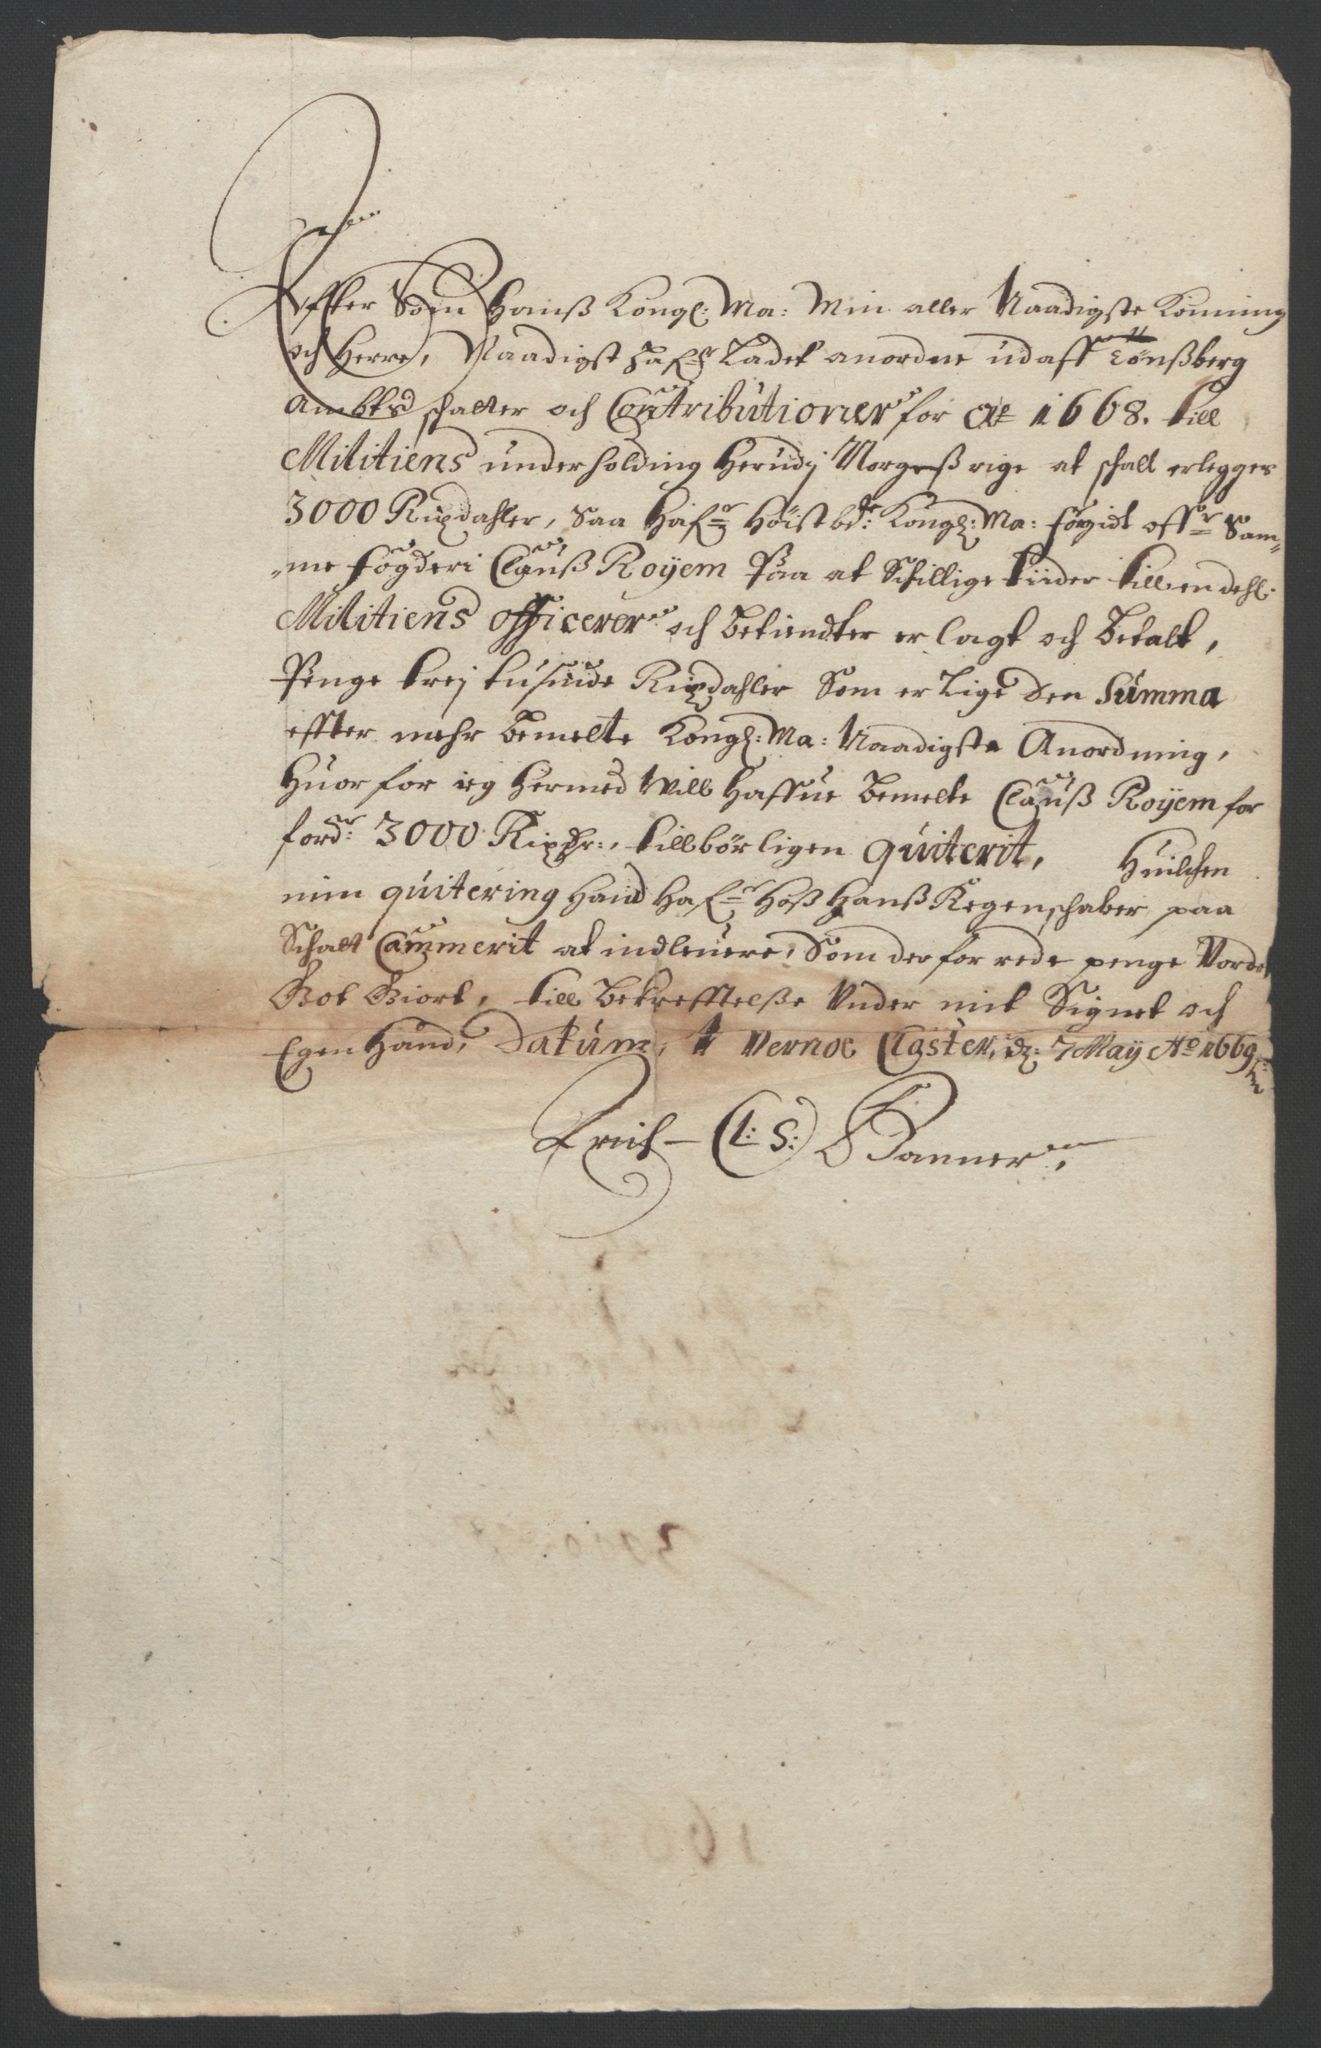 Effter Som Hanß Kongl: Ma: Min aller Naadigste Konning
och Herre, Naadigst hafr Ladet anordne udaff Tönßberg
Ambts schatter och Contributioner for Ao 1668. till
Militiens underholding Herudj Norgeß rige at schall erlegges
3000 Rixdahler, Saa hafr Höistbde: Kongl: Ma: fogidt offr Sam-
-me fögderi Clauß Royem Paa at Schillige tiider till en dehl:
Militiens officerer och betiendter er lagt och betalt,
Penge trej tusinde Rixdahler Som er Lige den Summa
effter mehr bemelte Kongl: Ma: Naadigste Anordning,
Huor for ieg hermed Will haffue bemelte Clauß Royem for
fordr: 3000 Rixdr:, tillbörligen quiterit, Huilchen
min quitering hand hafr hoß hanß Regenschaber paa
Schatt Cammerit at indleuere, Som der for rede penge Vorde
Got Giort, till bekrefftelße Under mit Signet och
Egen Haand, Datum, Vernoe Closter, d: 7 Maij Ao 1669
Erich (L: S:) Banner